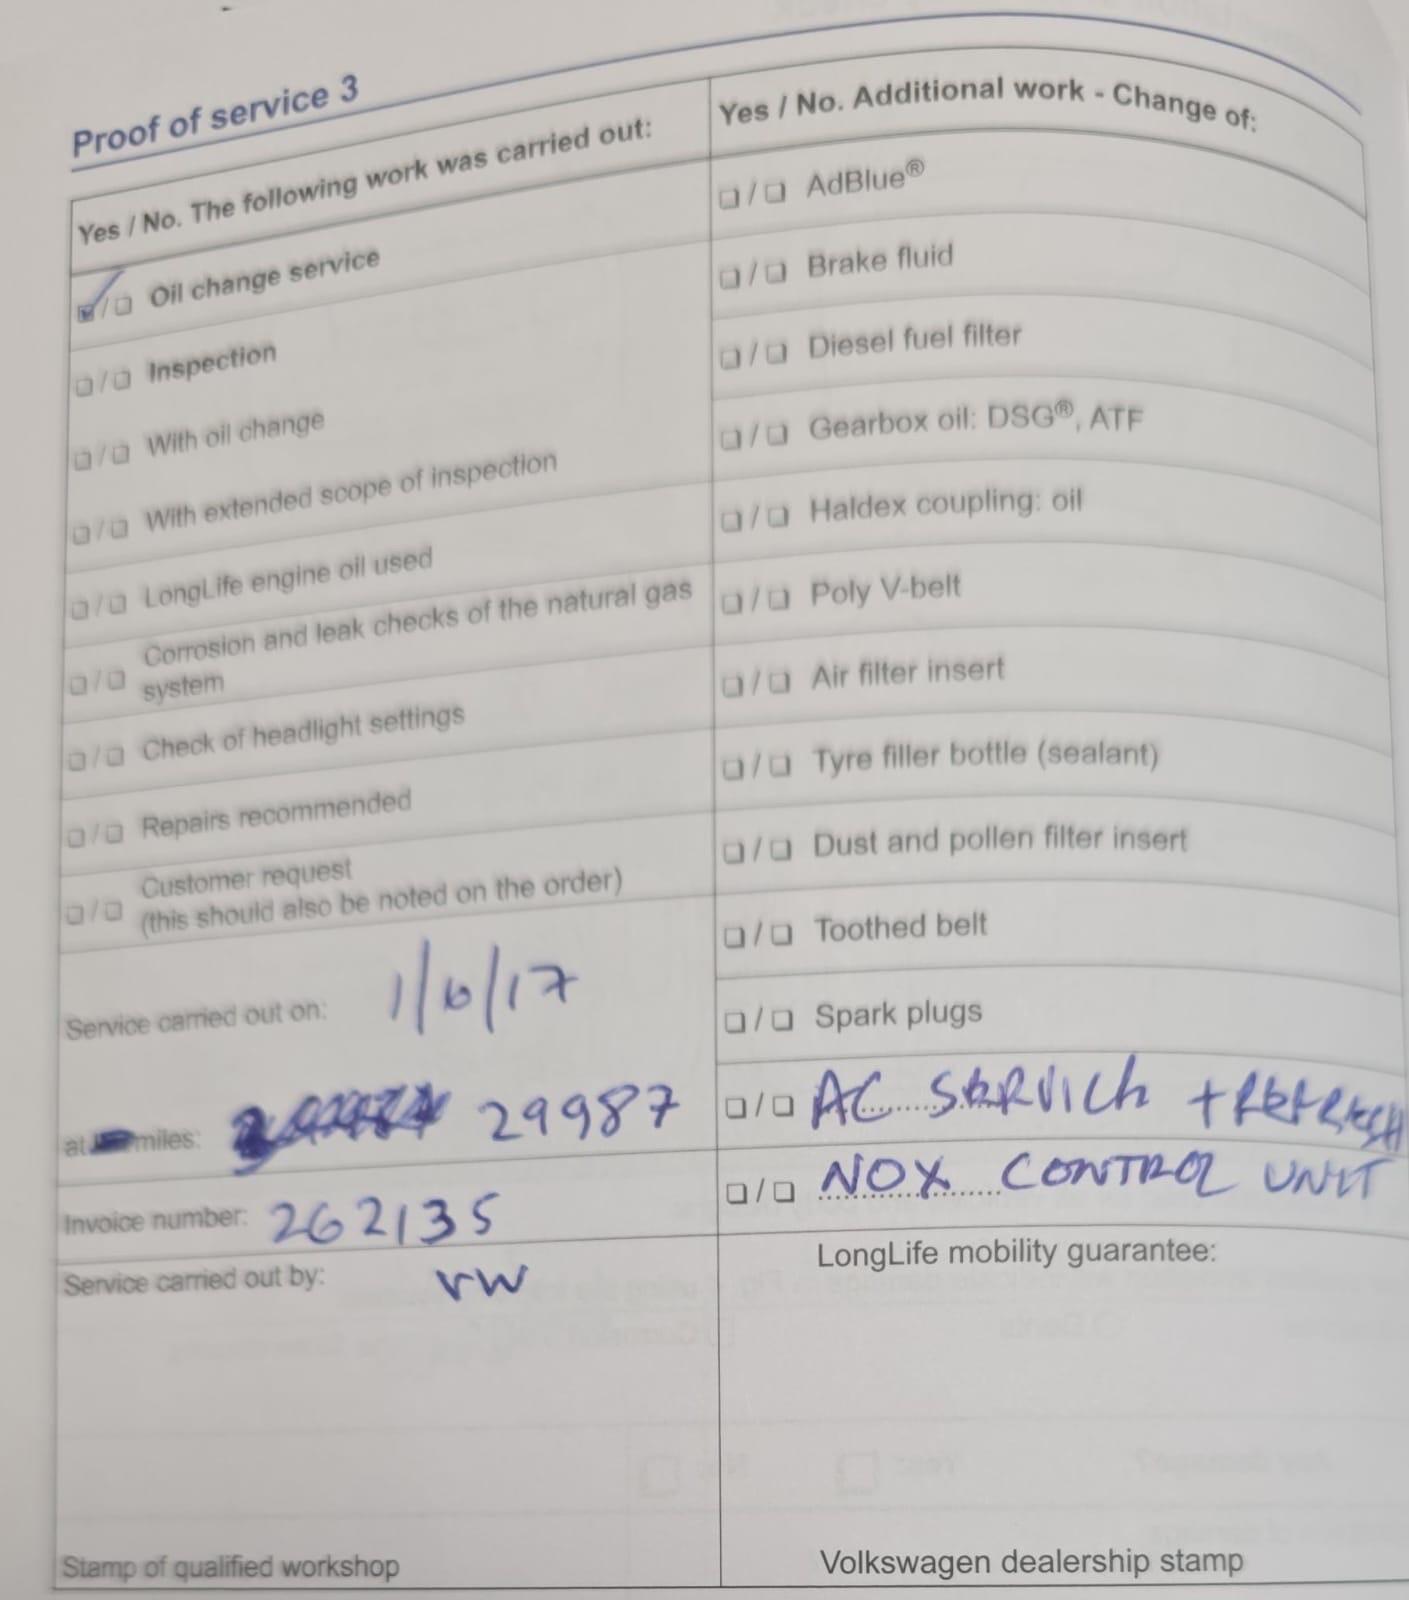 Proof of service 3
Yes / No. The following work was carried out:
☑/☐ Oil change service
☐/☐ Inspection
☐/☐ With oil change
☐/☐ With extended scope of inspection
☐/☐ LongLife engine oil used
☐/☐ Corrosion and leak checks of the natural gas
system
☐/☐ Check of headlight settings
☐/☐ Repairs recommended
☐/☐ Customer request
(this should also be noted on the order)
Service carried out on: 1/6/17
at miles: 29987
Invoice number: 262135
Service carried out by: rw
Stamp of qualified workshop
Yes / No. Additional work - Change of:
☐/☐ AdBlue®
☐/☐ Brake fluid
☐/☐ Diesel fuel filter
☐/☐ Gearbox oil: DSG®, ATF
☐/☐ Haldex coupling: oil
☐/☐ Poly V-belt
☐/☐ Air filter insert
☐/☐ Tyre filler bottle (sealant)
☐/☐ Dust and pollen filter insert
☐/☐ Toothed belt
☐/☐ Spark plugs
☐/☐ AC SERVICE + REFRESH
☐/☐ NOX CONTROL UNIT
LongLife mobility guarantee:
Volkswagen dealership stamp